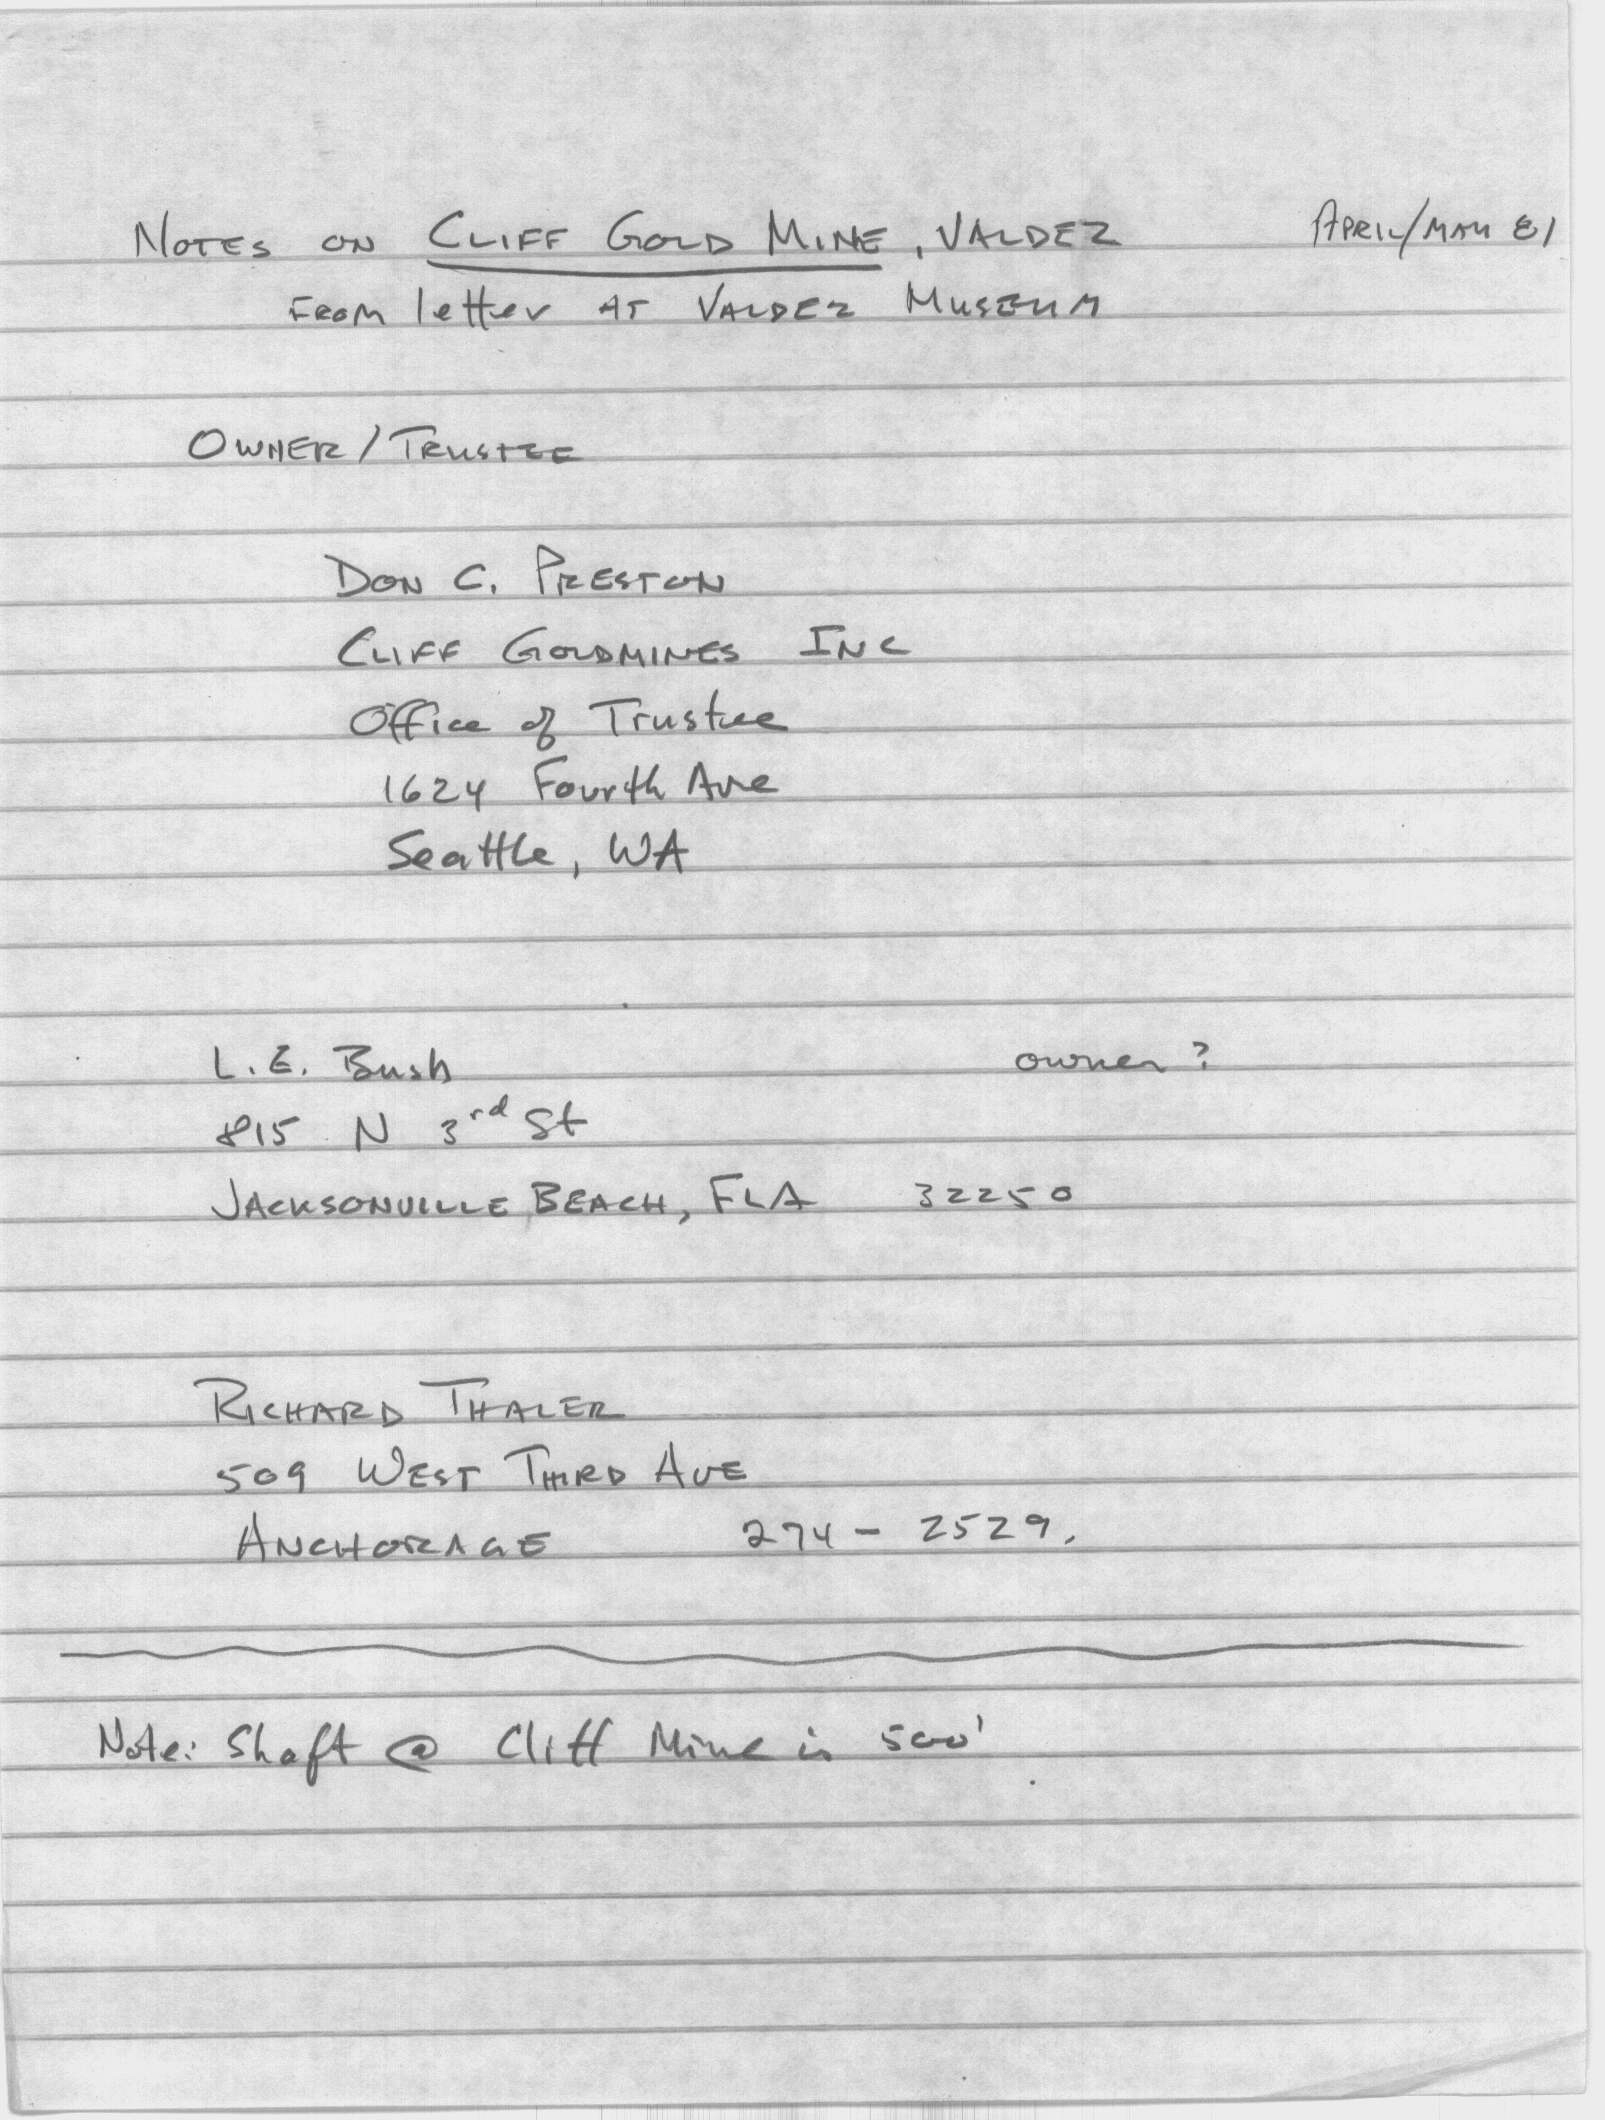 NOTES ON CLIFF GOLD MINE, VALDEZ APRIL/MAY 81
FROM letter AT VALDEZ MUSEUM
OWNER/TRUSTEE
DON C. PRESTON
CLIFF GOLDMINES INC
Office of Trustee
1624 Fourth Ave
Seattle, WA
L.E. Bush owner?
815 N 3rd St
JACKSONVILLE BEACH, FLA 32250
RICHARD THALER
509 WEST THIRD AVE
ANCHORAGE 274-2529.
Note: Shaft @ Cliff Mine is 500'